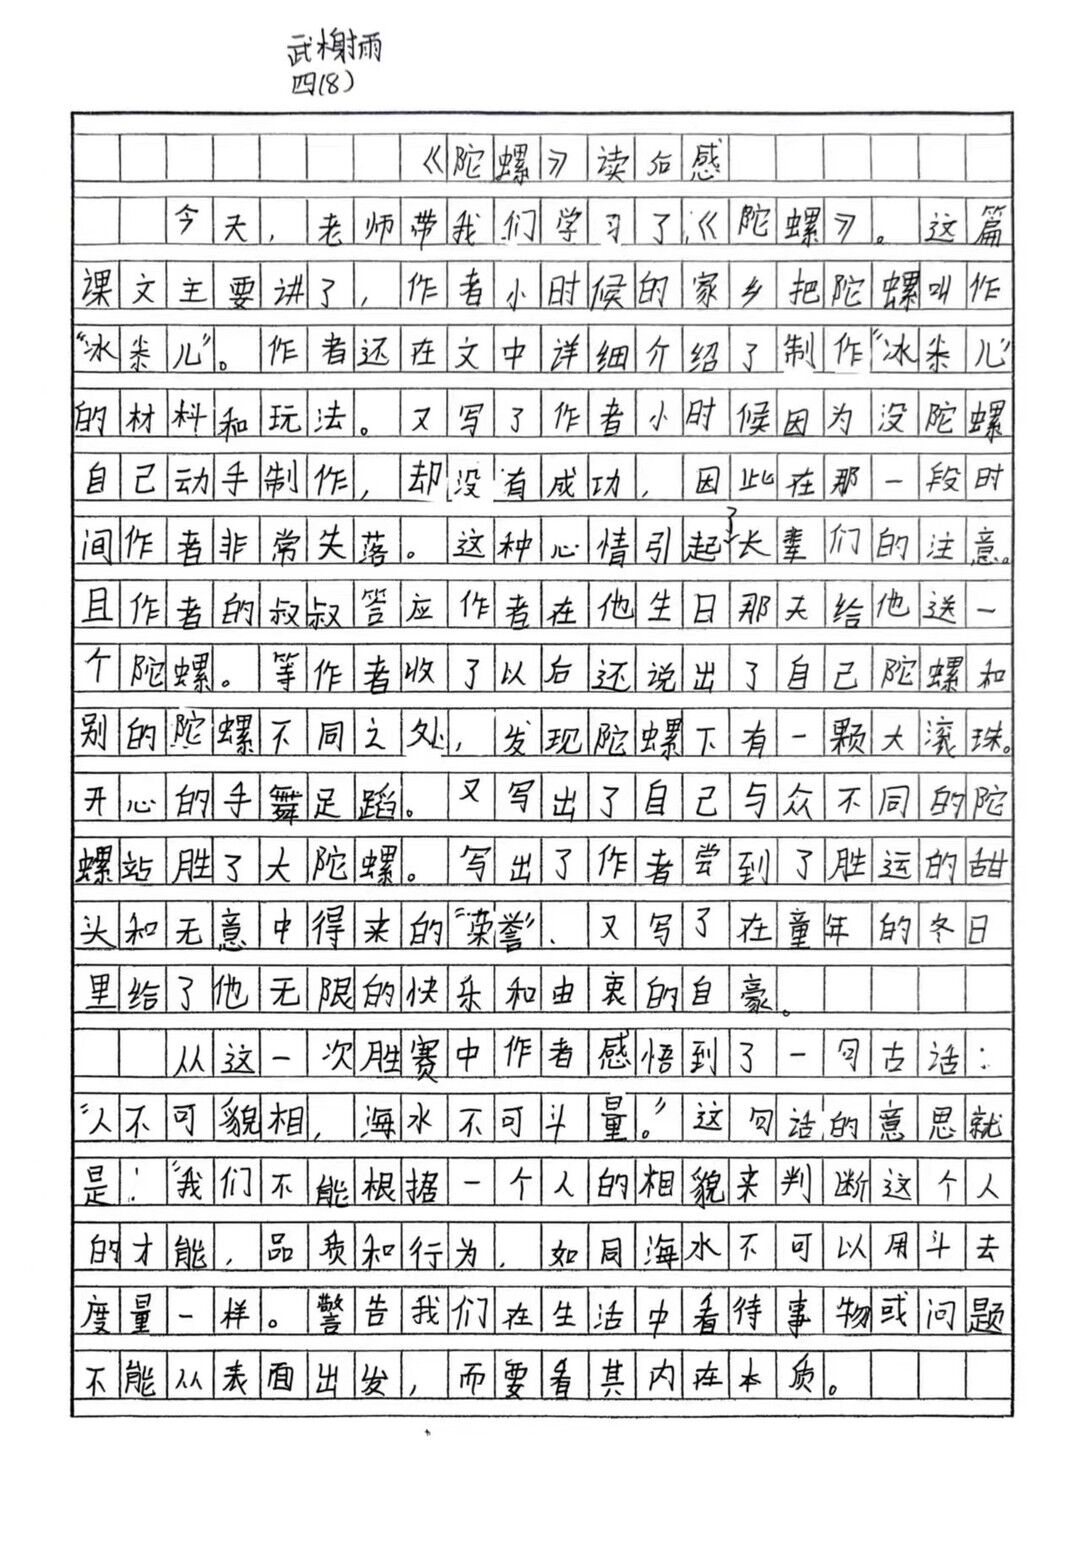 武榭雨
四(8)
《陀螺》读后感
今天，老师带我们学习了《陀螺》。这篇
课文主要讲了，作者小时候的家乡把陀螺叫作
“冰尜儿”。作者还在文中详细介绍了制作“冰尜儿”
的材料和玩法。又写了作者小时候因为没陀螺
自己动手制作，却没有成功，因此在那一段时
间作者非常失落。这种心情引起了长辈们的注意。
且作者的叔叔答应作者在他生日那天给他送一
个陀螺。等作者收了以后还说出了自己陀螺和
别的陀螺不同之处，发现陀螺下有一颗大滚珠。
开心的手舞足蹈。又写出了自己与众不同的陀
螺站胜了大陀螺。写出了作者尝到了胜运的甜
头和无意中得来的“荣誉”、又写了在童年的冬日
里给了他无限的快乐和由衷的自豪。
从这一次胜赛中作者感悟到了一句古话：
“人不可貌相，海水不可斗量。”这句话的意思就
是：“我们不能根据一个人的相貌来判断这个人
的才能，品质和行为，如同海水不可以用斗去
度量一样。警告我们在生活中看待事物或问题
不能从表面出发，而要看其内在本质。